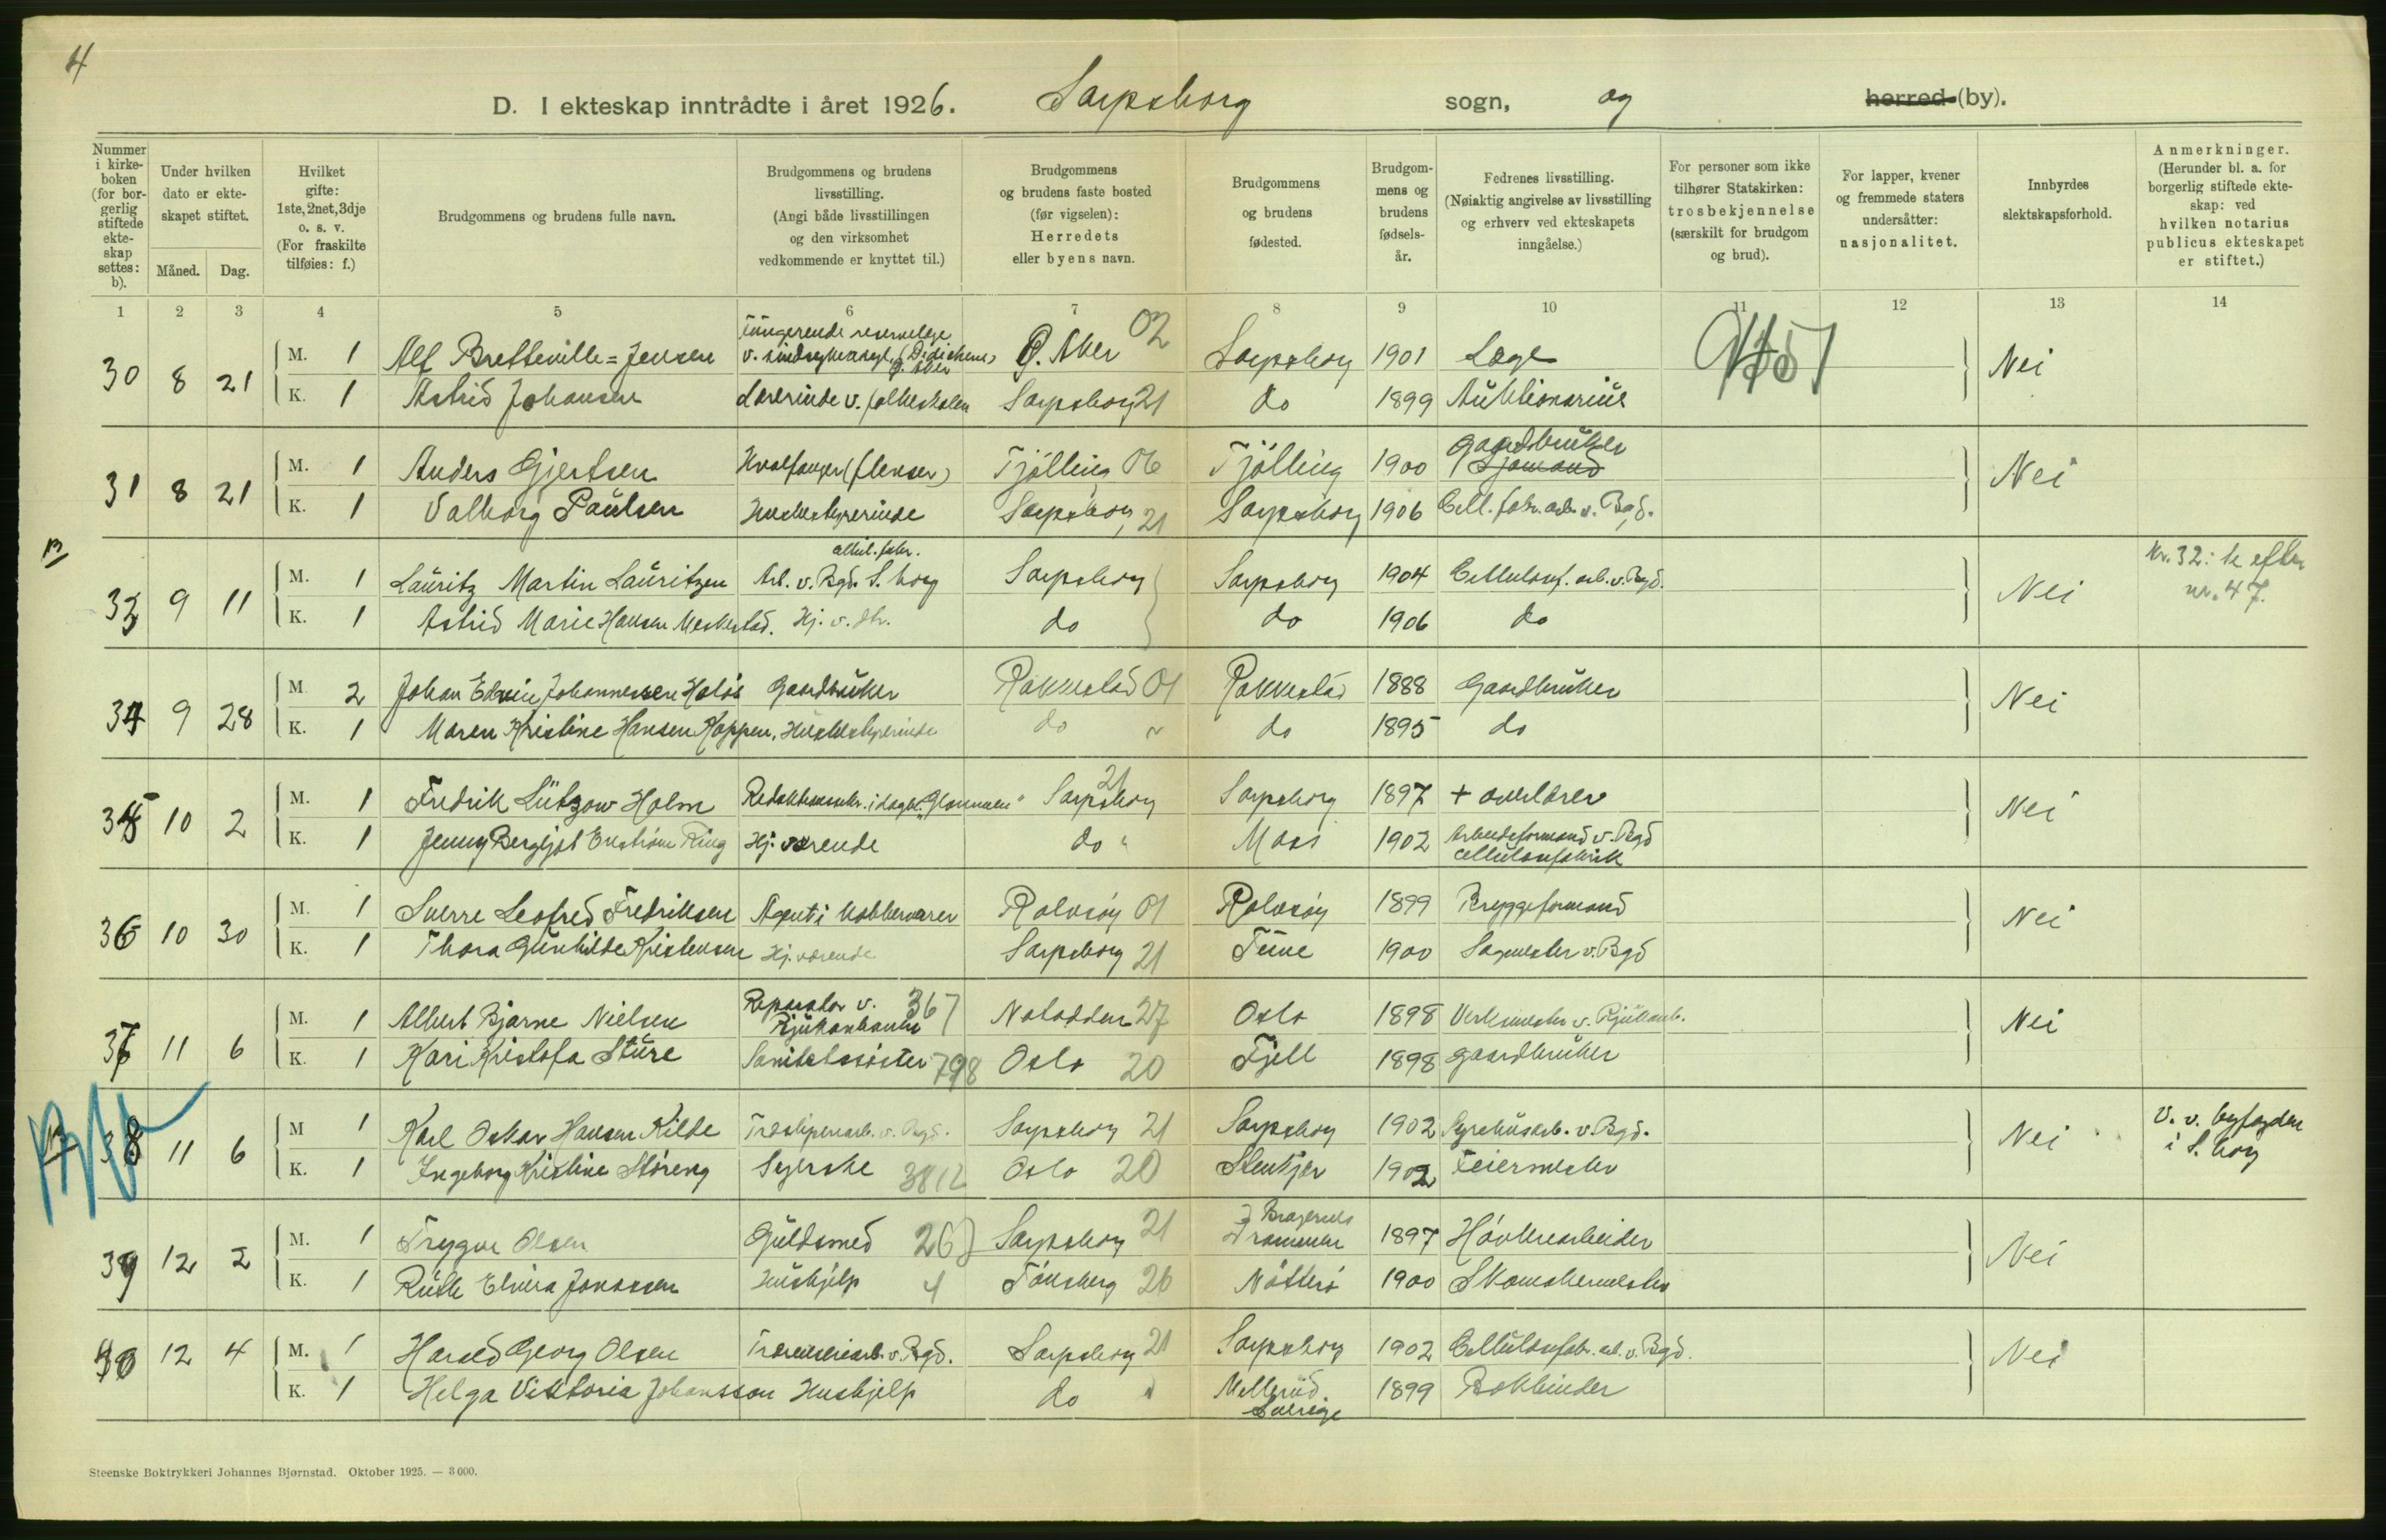 4
D. I ekteskap inntrådte i året 1926. Sarpsborg sogn, og herred (by).
Nummer i kirkeboken (for borgerlig stiftede ekteskap settes: b).
Under hvilken dato er ekteskapet stiftet.
Måned. Dag.
Hvilket gifte: 1ste, 2net, 3dje o. s. v. (For fraskilte tilføies: f.)
Brudgommens og brudens fulle navn.
Brudgommens og brudens livsstilling. (Angi både livsstillingen og den virksomhet vedkommende er knyttet til.)
Brudgommens og brudens faste bosted (før vigselen): Herredets eller byens navn.
Brudgommens og brudens fødested.
Brudgommens og brudens fødselsår.
Fedrenes livsstilling. (Nøiaktig angivelse av livsstilling og erhverv ved ekteskapets inngåelse.)
For personer som ikke tilhører Statskirken: trosbekjennelse (særskilt for brudgom og brud).
For lapper, kvener og fremmede staters undersåtter: nasjonalitet.
Innbyrdes slektskapsforhold.
Anmerkninger. (Herunder bl. a. for borgerlig stiftede ekteskap: ved hvilken notarius publicus ekteskapet er stiftet.)
1 2 3 4 5 6 7 8 9 10 11 12 13 14
30 8 21 M. 1 Alf Bretteville=Jensen Fungerende reservelæge v. sindsykeasyl (Dedichens) Ø. Aker Ø. Aker 02 Sarpsborg 1901 Læge Nei
K. 1 Astrid Johansen Lærerinde v. folkeskolen Sarpsborg 21 do 1899 Auktionarius
31 8 21 M. 1 Anders Gjertsen Hvalfanger (flenser) Tjølling 06 Tjølling 1900 Gaardbruker Sjømand Nei
K. 1 Valborg Paulsen Husbestyrerinde Sarpsborg 21 Sarpsborg 1906 Cell. fabr. arb. v. Bgd.
32 9 11 M. 1 Lauritz Martin Lauritzen Arb. v. Bgd. cellul. fabr. S.borg Sarpsborg Sarpsborg 1904 Cellulosef. arb. v. Bgd. Nei Nr. 32: se efter nr. 47.
K. 1 Astrid Marie Hansen Meskestad. Hj. v. dtr. do do 1906 do
34 9 28 M. 2 Johan Edvin Johannessen Holøs Gaardbruker Rakkestad 01 Rakkestad 1888 Gaardbruker Nei
K. 1 Maren Kristine Hansen Koppen. Husbestyrerinde do " do 1895 do
35 10 2 M. 1 Fredrik Lützow Holm Redaktionssekr. i dagbl. "Glommen" Sarpsborg 21 Sarpsborg 1897 + overlærer Nei
K. 1 Jenny Bergljot Enstrøm Ring Hj. værende do " Moss 1902 Arbeidsformand v. Bgd cellulosefabrik
36 10 30 M. 1 Sverre Leofred Fredriksen Agent i kobbervarer Rolvsøy 01 Rolvsøy 1899 Bryggeformand Nei
K. 1 Thora Gunhilde Kristensen Hj. værende Sarpsborg 21 Tune 1900 Sagmester v. Bgd
37 11 6 M. 1 Albert Bjarne Nielsen Reparatør v. Rjukanbanen 367 Notodden 27 Oslo 1898 Verksmester v. Rjukanb. Nei
K. 1 Kari Kristofa Sture Sanitetssøster 798 Oslo 20 Fjell 1898 gaardbruker
38 11 6 M 1 Karl Oskar Hansen Kilde Træsliperiarb. v. Bgd. Sarpsborg 21 Sarpsborg 1902 Syrehusarb. v. Bgd. Nei V. v. byfogden i S.borg
K. 1 Ingeborg Kristine Støreng Syerske 3812 Oslo 20 Stenkjer 1902 Feiermester
39 12 2 M. 1 Trygve Olsen Guldsmed 267 Sarpsborg 21 Bragernes Drammen 1897 Høvleriarbeider Nei
K. 1 Ruth Elvira Jonassen Hushjelp 4 Tønsberg 26 Nøtterø 1900 Skomakermester
40 12 4 M. 1 Harald Georg Olsen Træsliperiarb. v. Bgd. Sarpsborg 21 Sarpsborg 1902 Cellulosefabr. arb. v. Bgd. Nei
K. 1 Helga Viktoria Johansson Hushjelp do " Mellerud. Sverige 1899 Bokbinder
Steenske Boktrykkeri Johannes Bjørnstad. Oktober 1925. — 3 000.